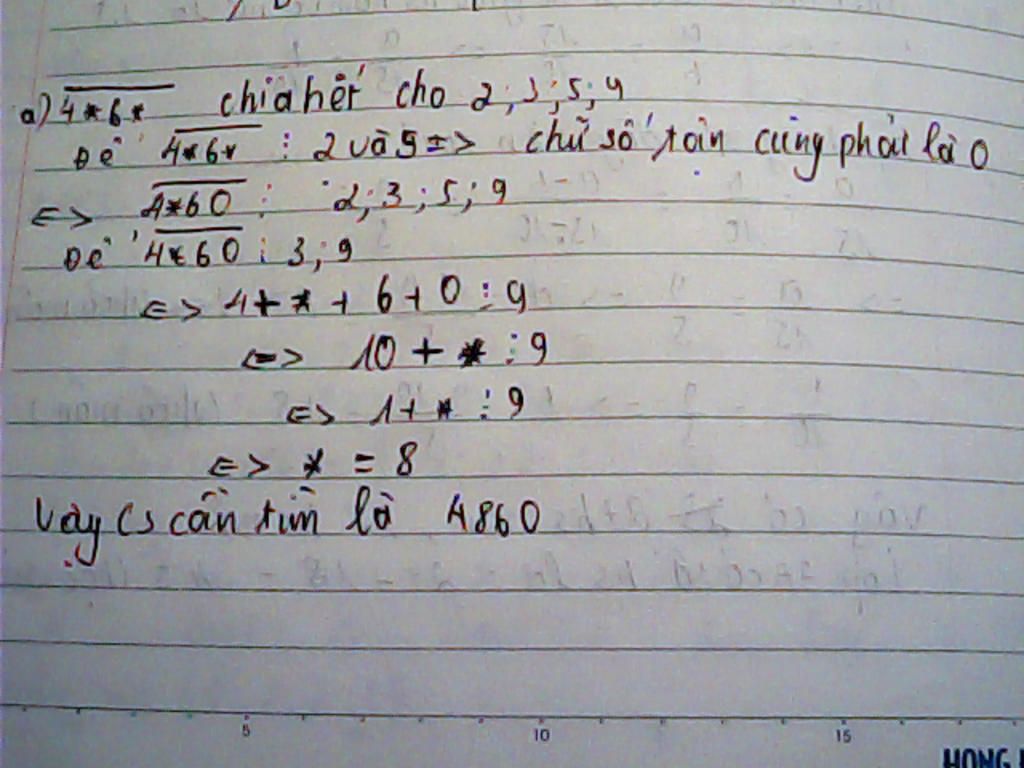 a) 4*6* chia hết cho 2; 3; 5; 9
Để 4*6* ⋮ 2 và 5 => chữ số tận cùng phải là 0
<=> 4*60 ⋮ 2; 3; 5; 9
Để 4*60 ⋮ 3; 9
<=> 4 + * + 6 + 0 ⋮ 9
<=> 10 + * ⋮ 9
<=> 1 + * ⋮ 9
<=> * = 8
Vậy cs cần tìm là 4860
5 10 15
HONG